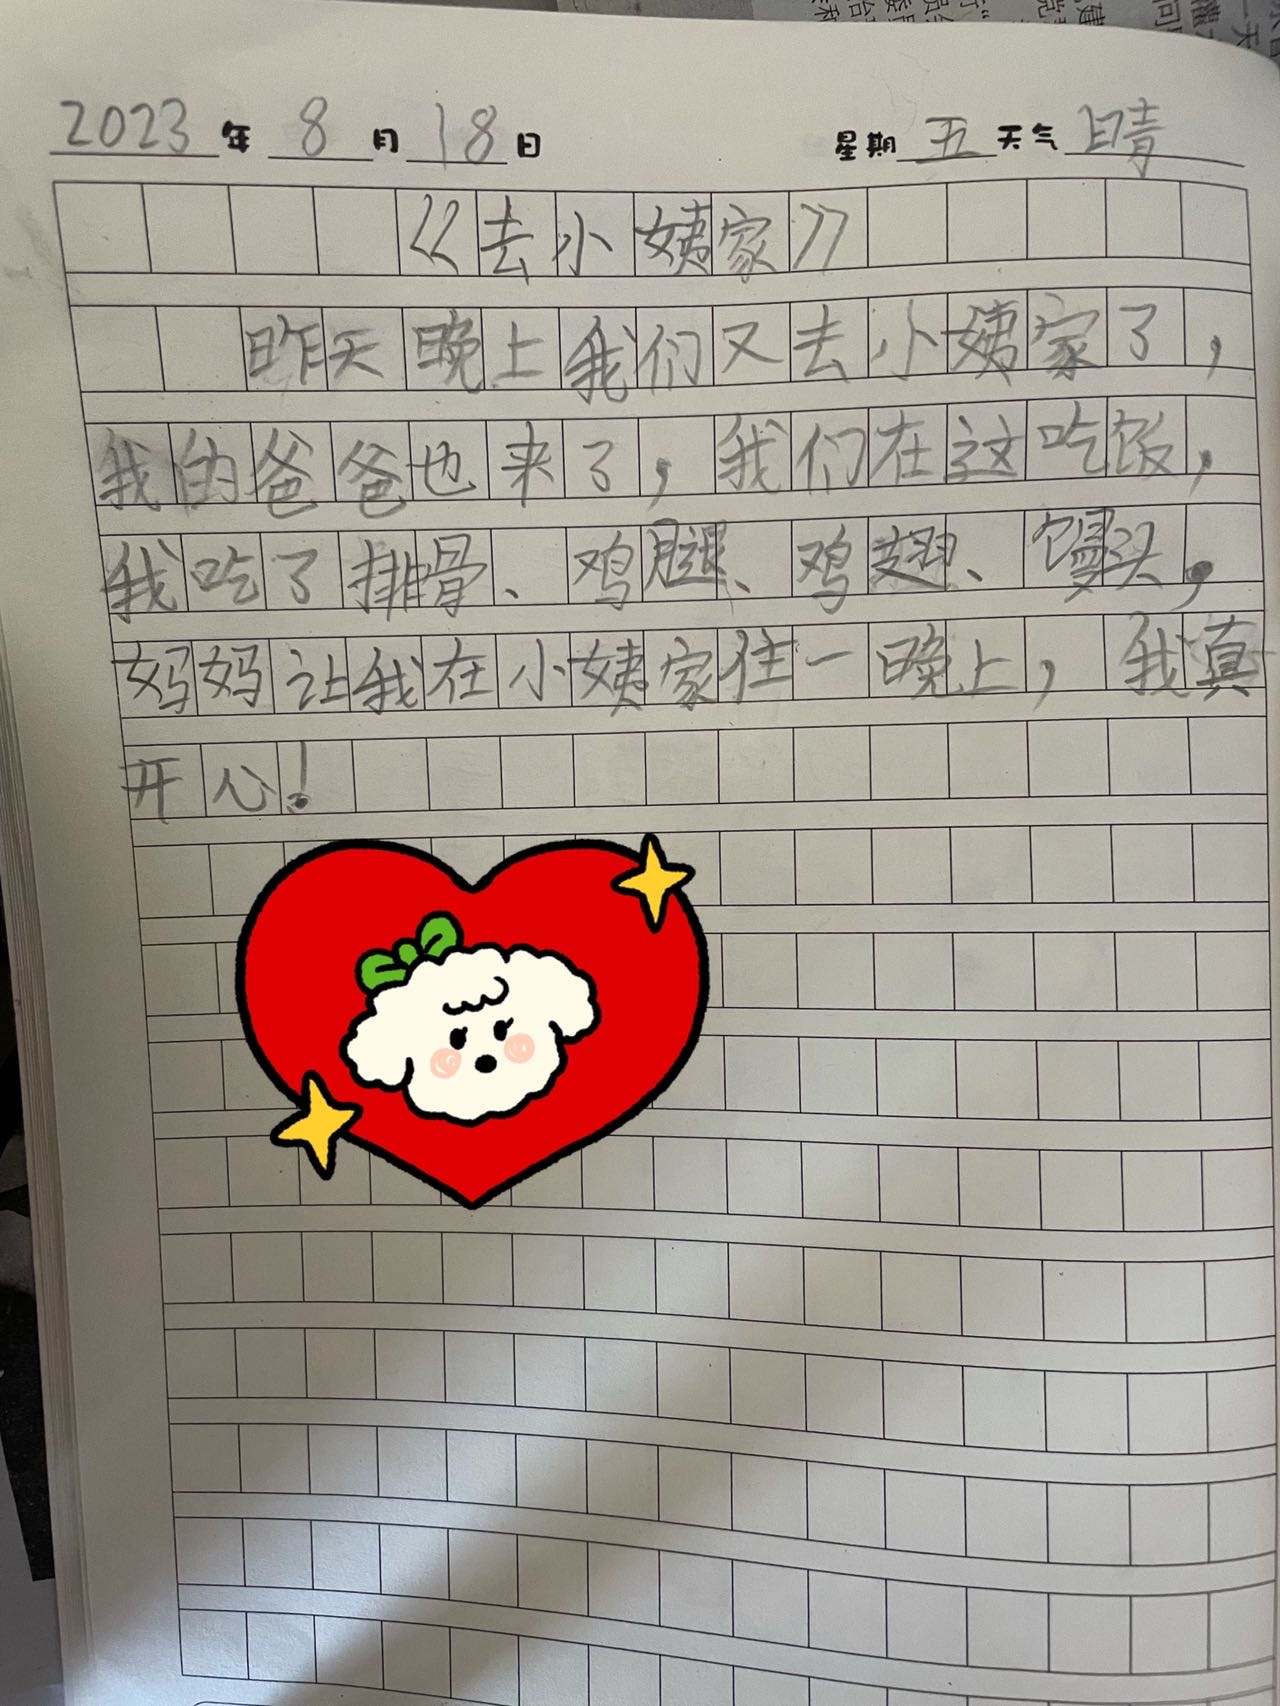 2023年8月18日 星期五天气晴
《去小姨家》
昨天晚上我们又去小姨家了，
我的爸爸也来了，我们在这吃饭，
我吃了排骨、鸡腿、鸡翅、馒头，
妈妈让我在小姨家住一晚上，我真
开心！